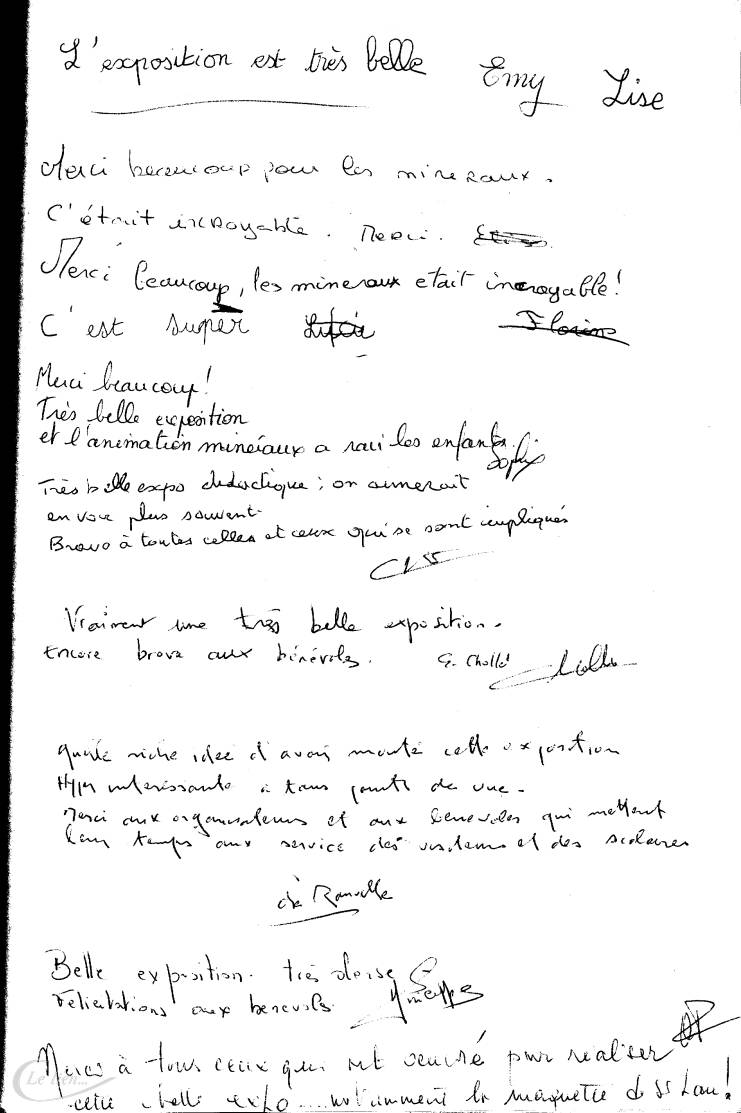 L'exposition est très belle Emy Lise
Merci beaucoup pour les mineraux.
C'était incroyable. Merci.
Merci beaucoup, les mineraux etait incroyable!
C'est super
Merci beaucoup!
Très belle exposition
et l'animation minéraux a ravi les enfants. Sophie
Très belle expo didactique; on aimerait
en voir plus souvent
Bravo à toutes celles et ceux qui se sont impliqués
Vraiment une très belle exposition.
Encore bravo aux bénévoles. G. Chollé
Quelle riche idée d'avoir monté cette exposition
Hyper intéressante à tous points de vue.
Merci aux organisateurs et aux benevoles qui mettent
leur temps aux service des visiteurs et des scolaires
de Ranville
Belle exposition. très dense
Félicitations aux benevols.
Merci à tous ceux qui ont oeuvré pour realiser
cette belle expo... notamment la maquette de St Lau!
Le lien...